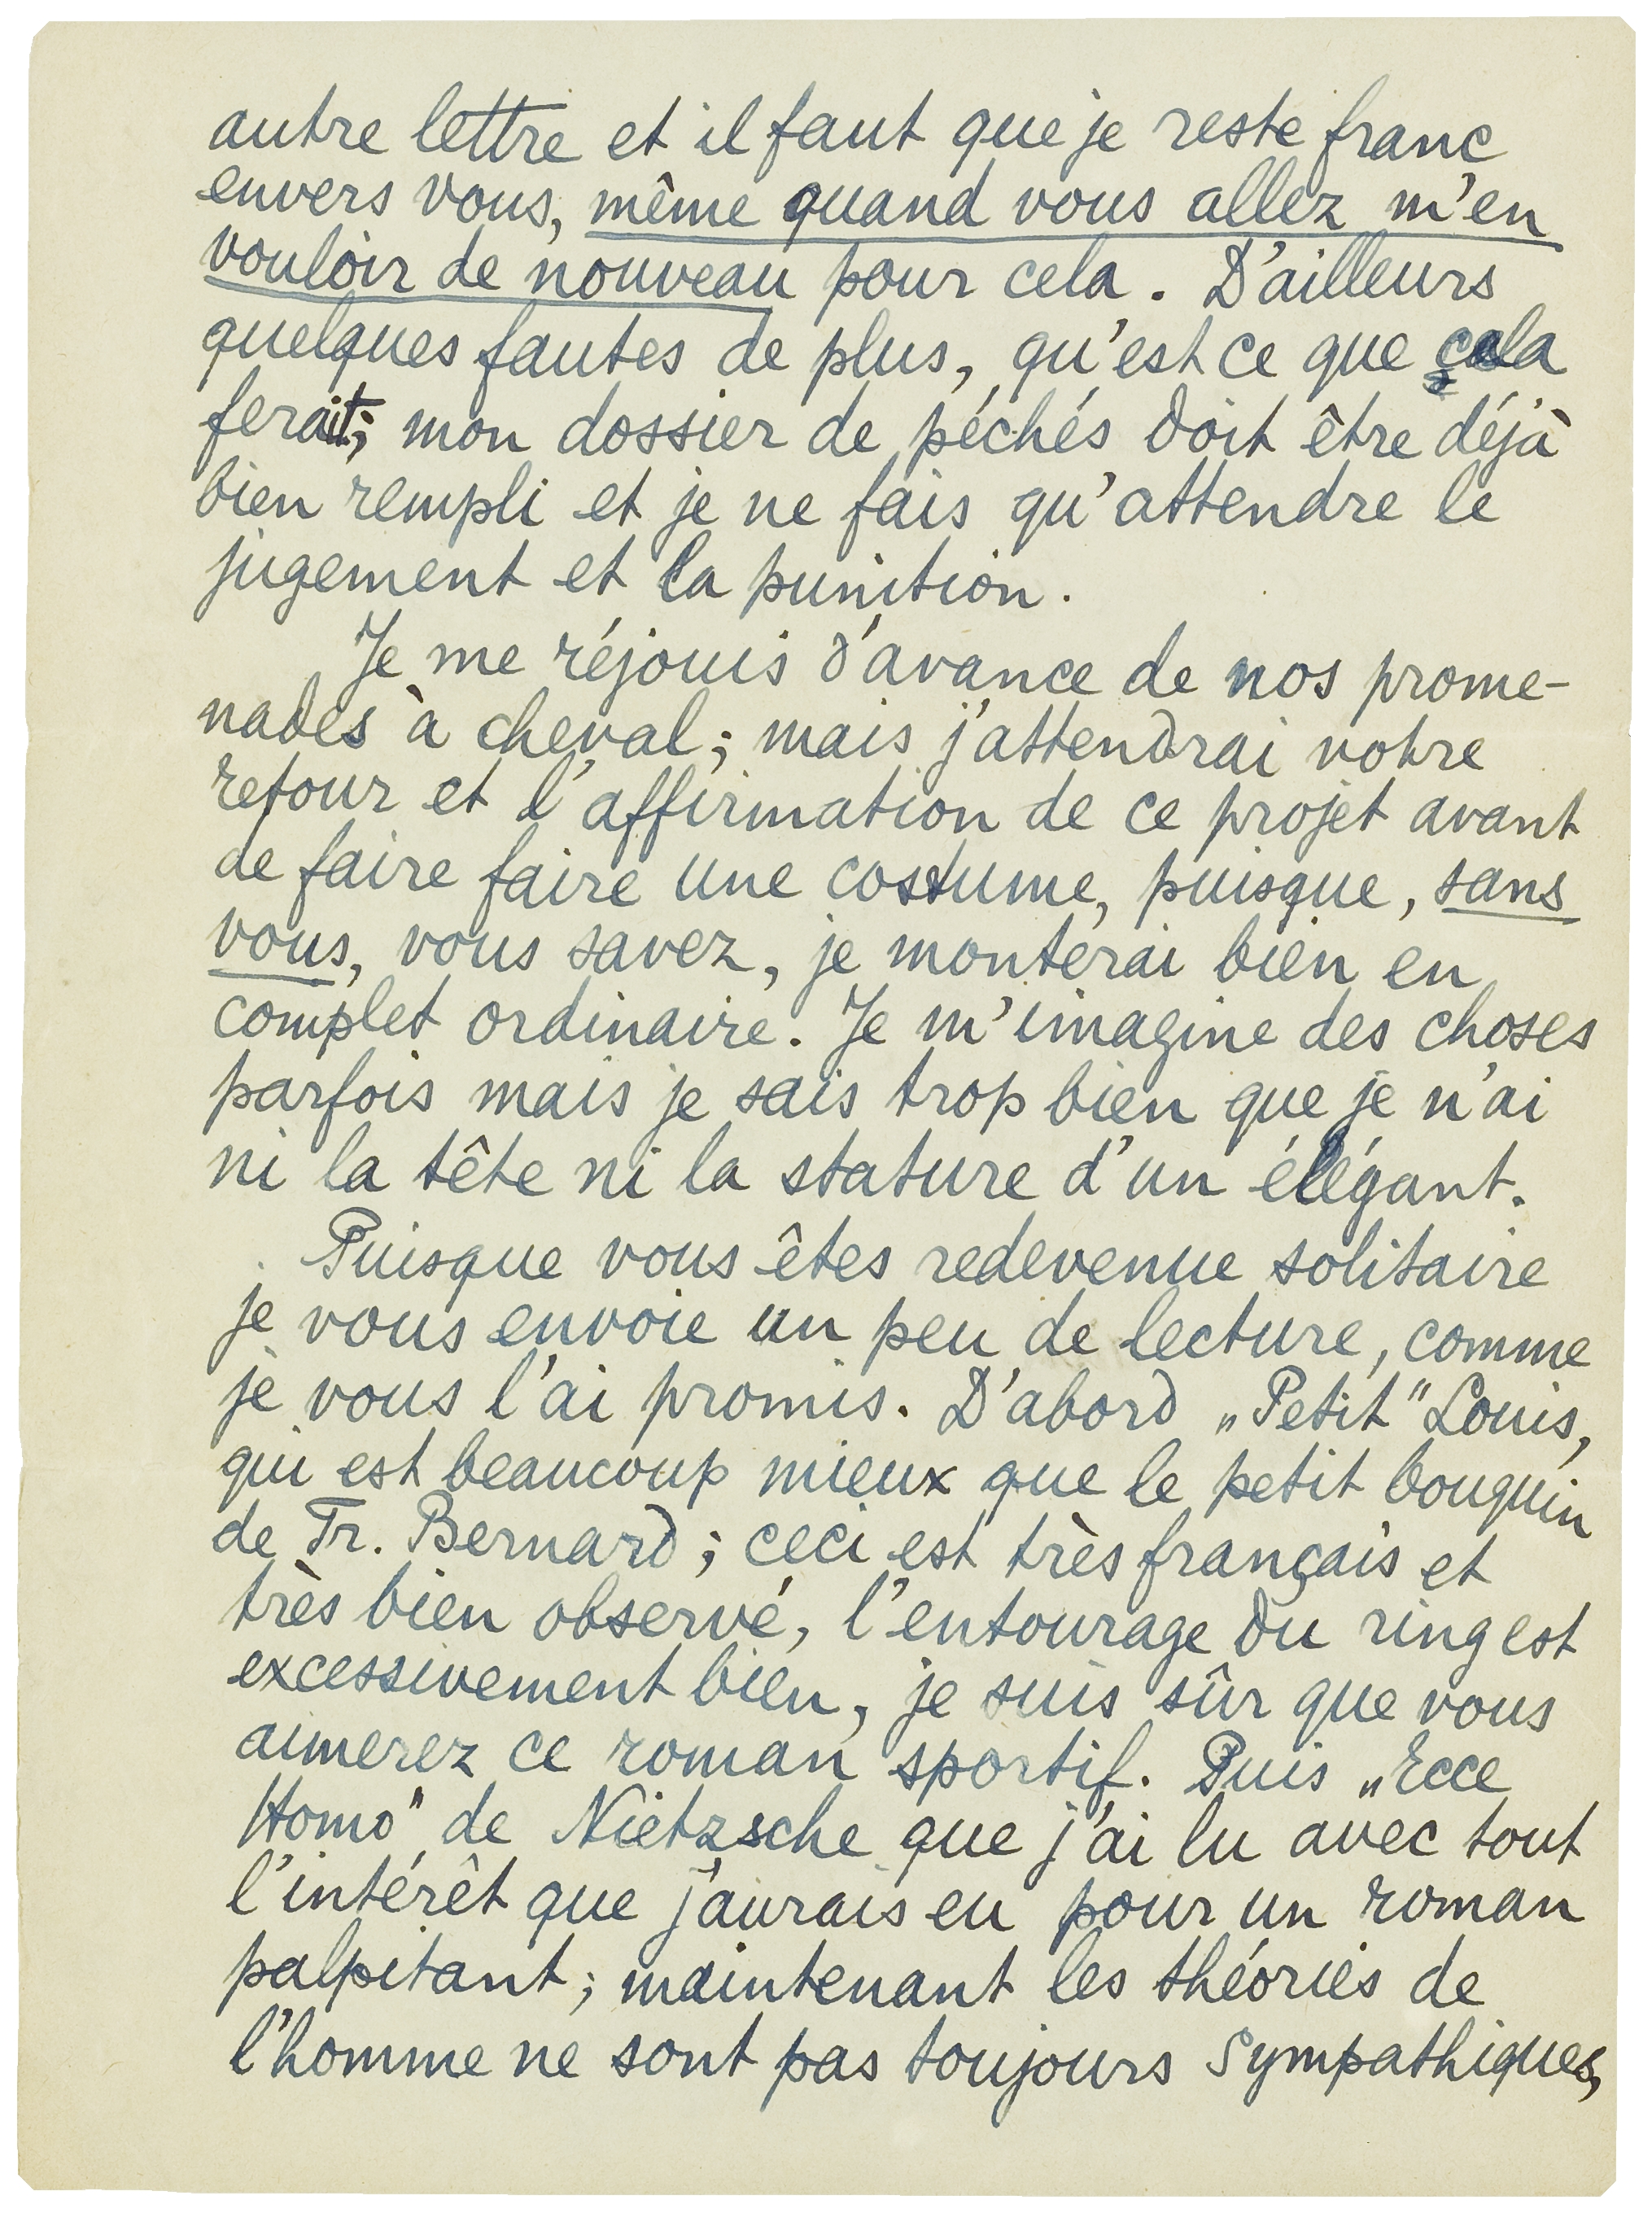 autre lettre et il faut que je reste franc
envers vous, même quand vous allez m'en
vouloir de nouveau pour cela. D'ailleurs
quelques fautes de plus, qu'est ce que cela
ferait; mon dossier de péchés doit être déjà
bien rempli et je ne fais qu'attendre le
jugement et la punition.
Je me réjouis d'avance de nos prome-
nades à cheval; mais j'attendrai votre
retour et l'affirmation de ce projet avant
de faire faire une costume, puisque, sans
vous, vous savez, je monterai bien en
complet ordinaire. Je m'imagine des choses
parfois mais je sais trop bien que je n'ai
ni la tête ni la stature d'un élégant.
Puisque vous êtes redevenue solitaire
je vous envoie un peu de lecture, comme
je vous l'ai promis. D'abord „Petit" Louis,
qui est beaucoup mieux que le petit bouquin
de Tr. Bernard; ceci est très français et
très bien observé, l'entourage du ring est
excessivement bien, je suis sûr que vous
aimerez ce roman sportif. Puis „Ecce
Homo" de Nietzsche que j'ai lu avec tout
l'intérêt que j'aurais eu pour un roman
palpitant; maintenant les théories de
l'homme ne sont pas toujours sympathiques,